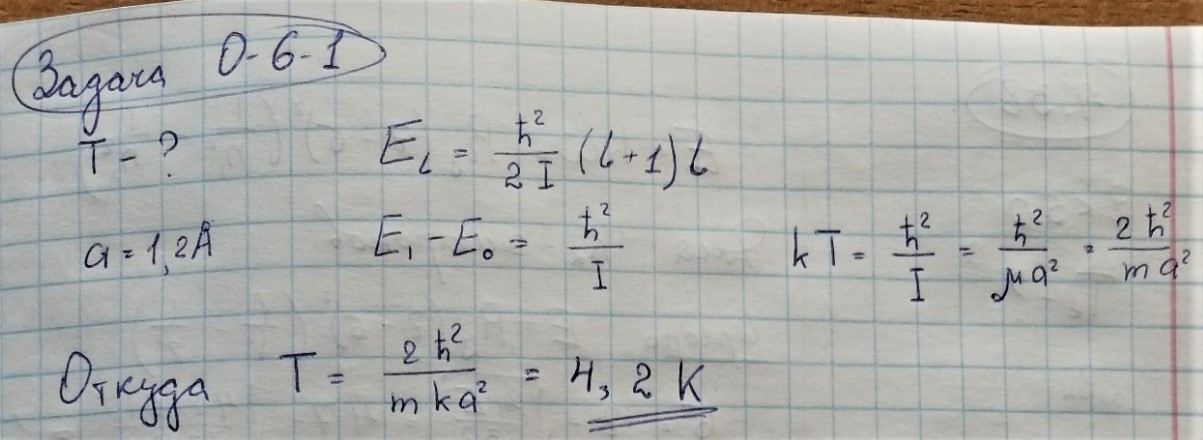 Задача 0-6-1
T - ? E_l = ħ²/2I (l+1)l
a = 1,2Å E₁ - E₀ = ħ²/I kT = ħ²/I = ħ²/μa² = 2ħ²/ma²
Откуда T = 2ħ²/mka² = 4,2 K